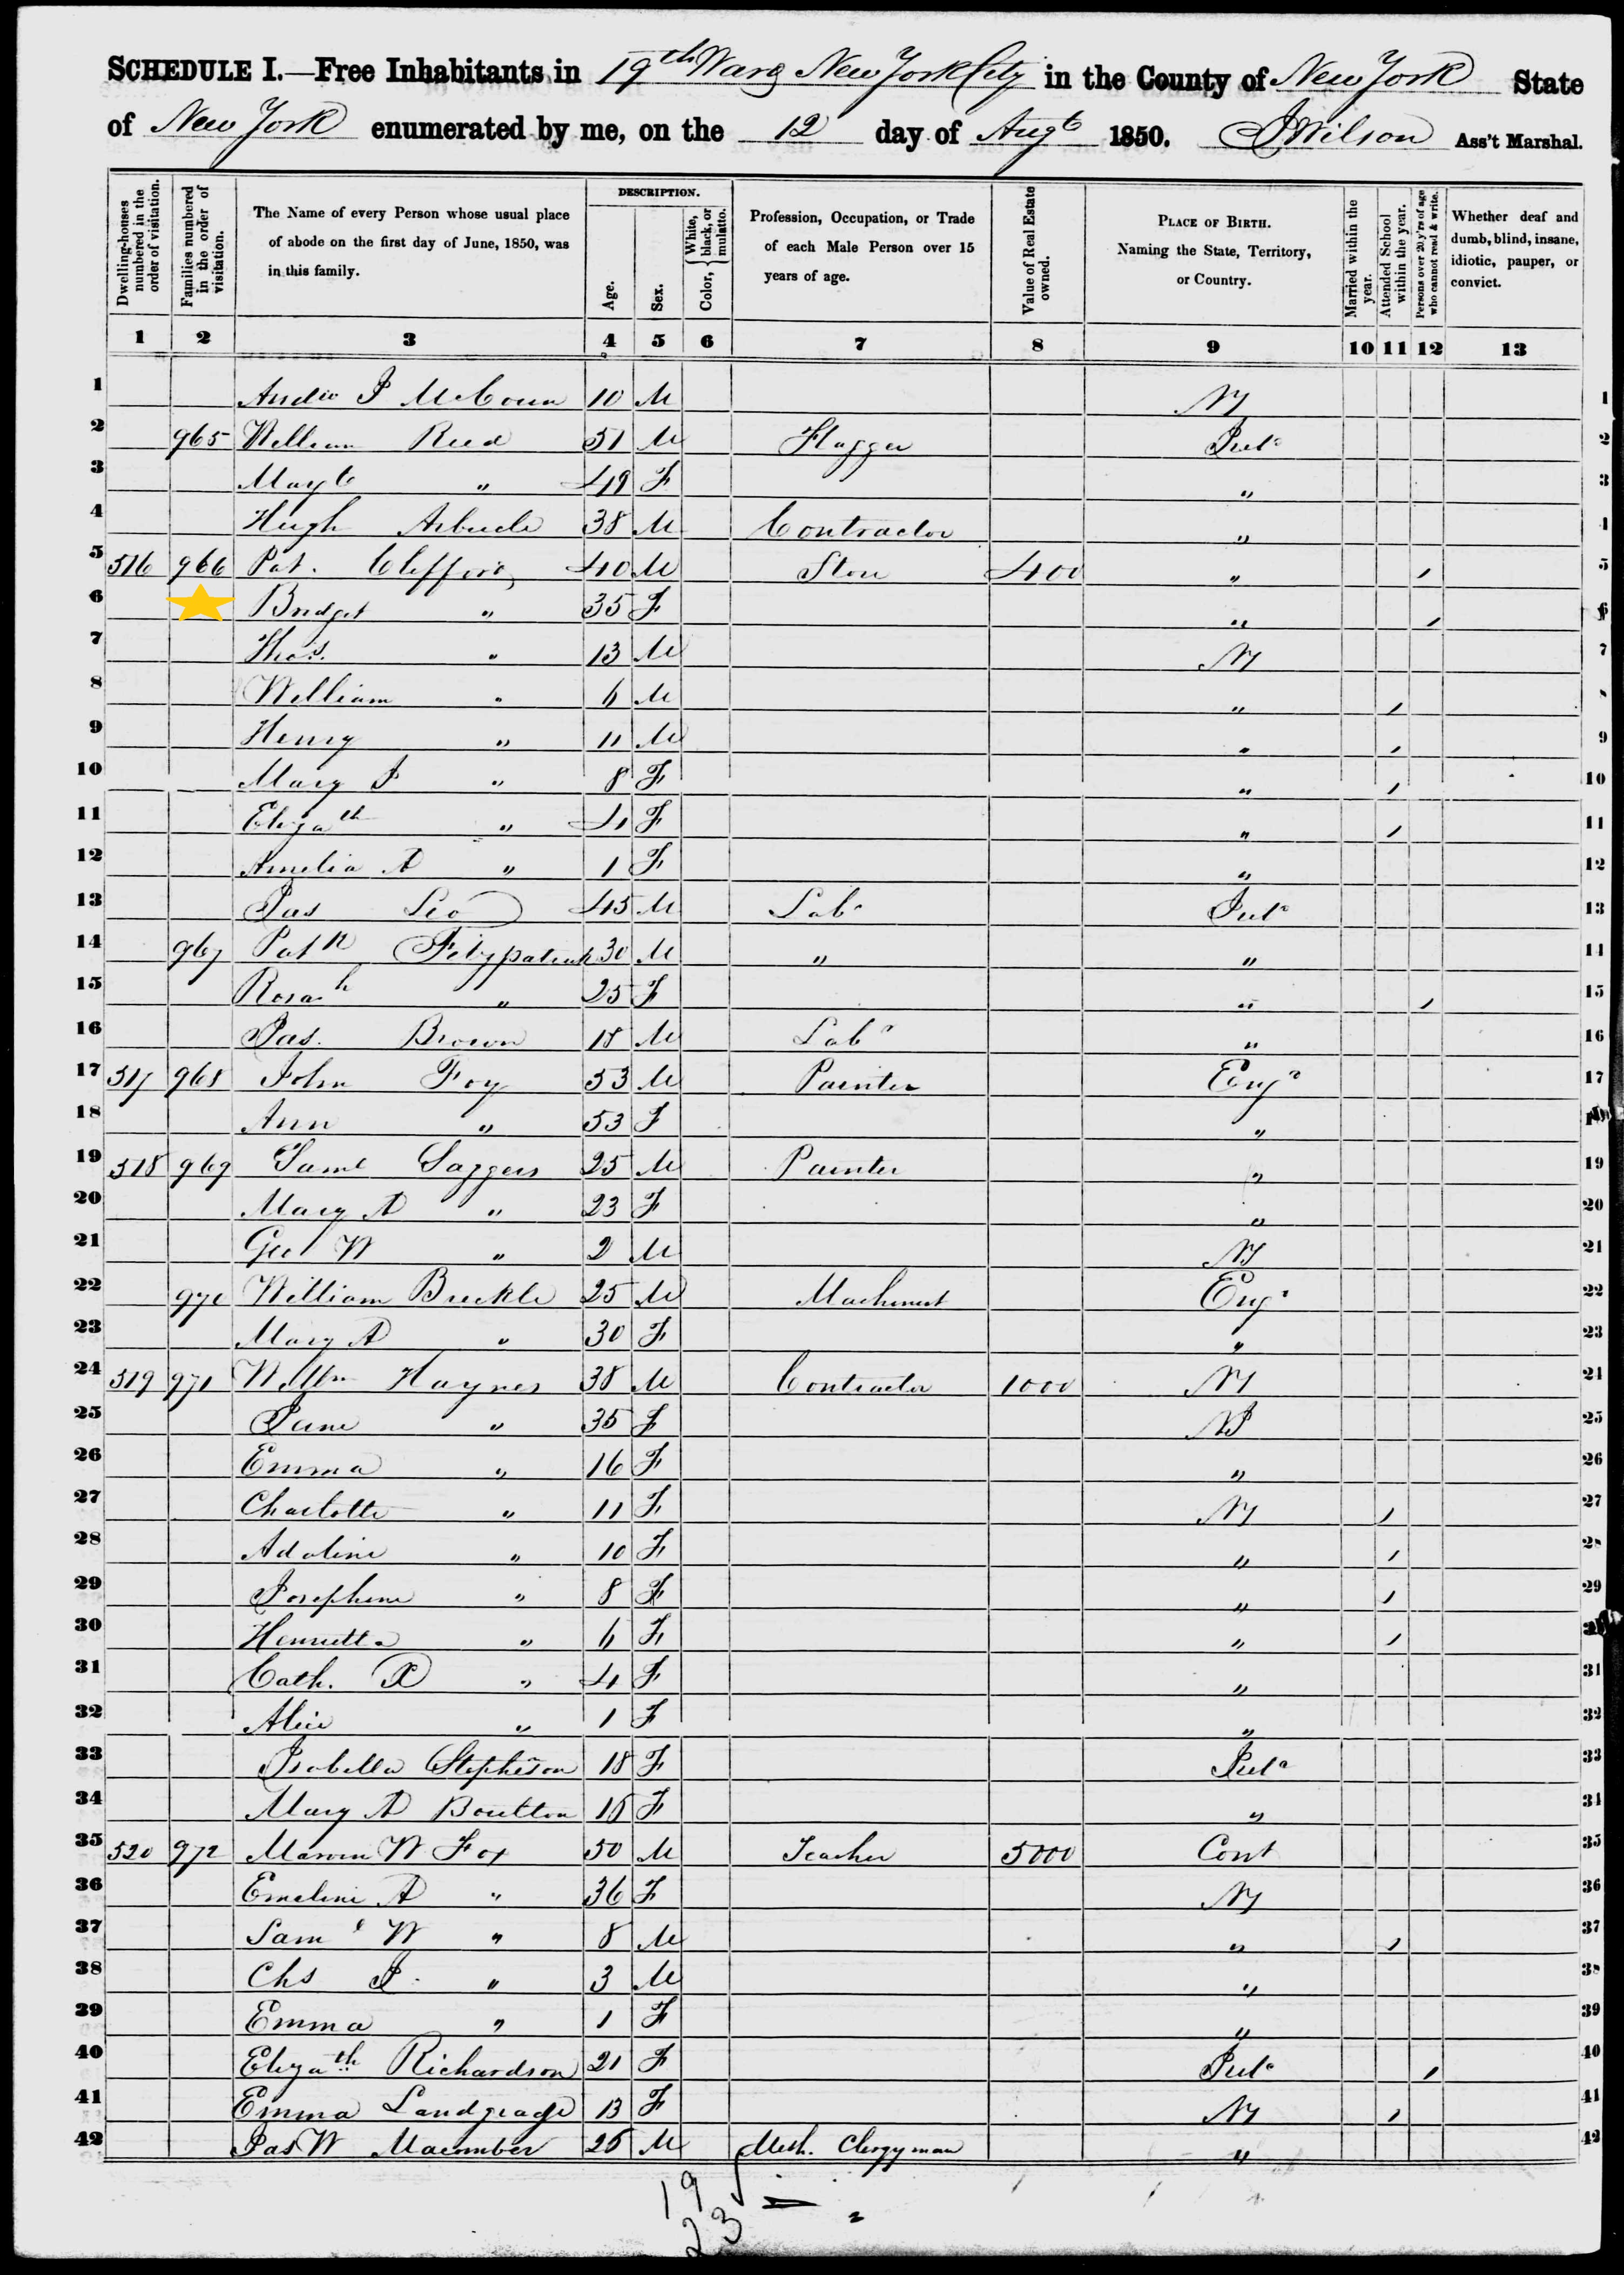 SCHEDULE I.—Free Inhabitants in 19th Ward New York City in the County of New York State
of New York enumerated by me, on the 12 day of Augt 1850. J Wilson Ass't Marshal.
Dwelling-houses numbered in the order of visitation.
Families numbered in the order of visitation.
The Name of every Person whose usual place of abode on the first day of June, 1850, was in this family.
DESCRIPTION.
Age.
Sex.
Color, { White, black, or mulatto.
Profession, Occupation, or Trade of each Male Person over 15 years of age.
Value of Real Estate owned.
PLACE OF BIRTH. Naming the State, Territory, or Country.
Married within the year.
Attended School within the year.
Persons over 20 y'rs of age who cannot read & write.
Whether deaf and dumb, blind, insane, idiotic, pauper, or convict.
1 2 3 4 5 6 7 8 9 10 11 12 13
1 10 M NY 1
2 965 William Reed 51 M Flagger Irela 2
3 " 49 F " 3
4 Hugh 38 M Contractor " 4
5 516 966 Pat. Clifford 40 M Store 400 " / 5
6 Bridget " 35 F " / 6
7 Thos. " 13 M NY 7
8 William " 6 M " / 8
9 Henry " 11 M " / 9
10 Mary J " 8 F " / 10
11 Elizath " 4 F " / 11
12 Amelia A " 1 F " 12
13 Jas Leo 45 M Labr Irela 13
14 967 Patk Fitzpatrick 30 M " " 14
15 Rosah " 25 F " / 15
16 Jas. Brown 18 M Labr " 16
17 517 968 John Foy 53 M Painter Engd 17
18 Ann " 53 F " 18
19 518 969 Saml Saggers 25 M Painter " 19
20 Mary A " 23 F " 20
21 Geo W " 2 M NY 21
22 970 William Breckle 25 M Machinist Engd 22
23 Mary A " 30 F " 23
24 519 971 Willm Haynes 38 M Contractor 1000 NY 24
25 Jane " 35 F NJ 25
26 Emma " 16 F " 26
27 Charlotte " 11 F NY / 27
28 Adoline " 10 F " / 28
29 Josephine " 8 F " / 29
30 Henrietta " 6 F " / 30
31 Cath. A " 4 F " 31
32 Alice " 1 F " 32
33 Isabella Stephenson 18 F Irela 33
34 Mary A Boulton 15 F " 34
35 520 972 Marvin W Fox 50 M Teacher 5000 Cont 35
36 Emeline A " 36 F NY 36
37 Saml W " 8 M " / 37
38 Chs J. " 3 M " 38
39 Emma " 1 F " 39
40 Elizath Richardson 21 F Irela / 40
41 Emma Landgrage 13 F NY / 41
42 Jas W Macomber 25 M Meth. Clergyman " 42
19
23